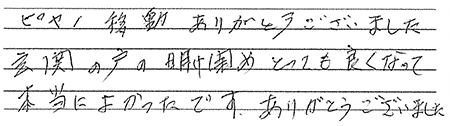 ピヤノ移動 ありがとうございました
玄関の戸の開閉め とっても良くなって
本当によかったです。ありがとうございました